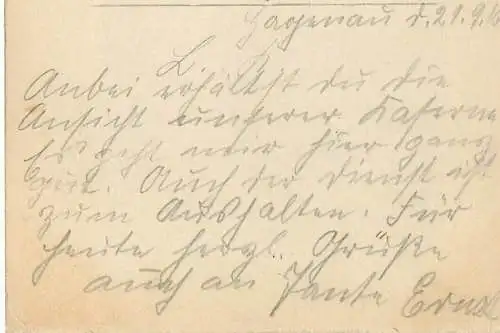 Hagenau d. 21.9.
L. R.
Anbei erhältst du die
Ansicht unserer Kaserne
Es geht mir hier ganz
gut. Auch der Dienst ist
zum Aushalten. Für
heute herzl. Grüße
auch an Tante Ernst